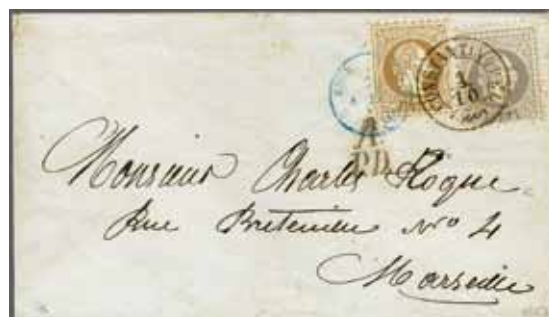 CONSTANTINOPEL
1
10
A
P.D.
Monsieur Charles Roque
Rue Breteuil No 4
Marseille